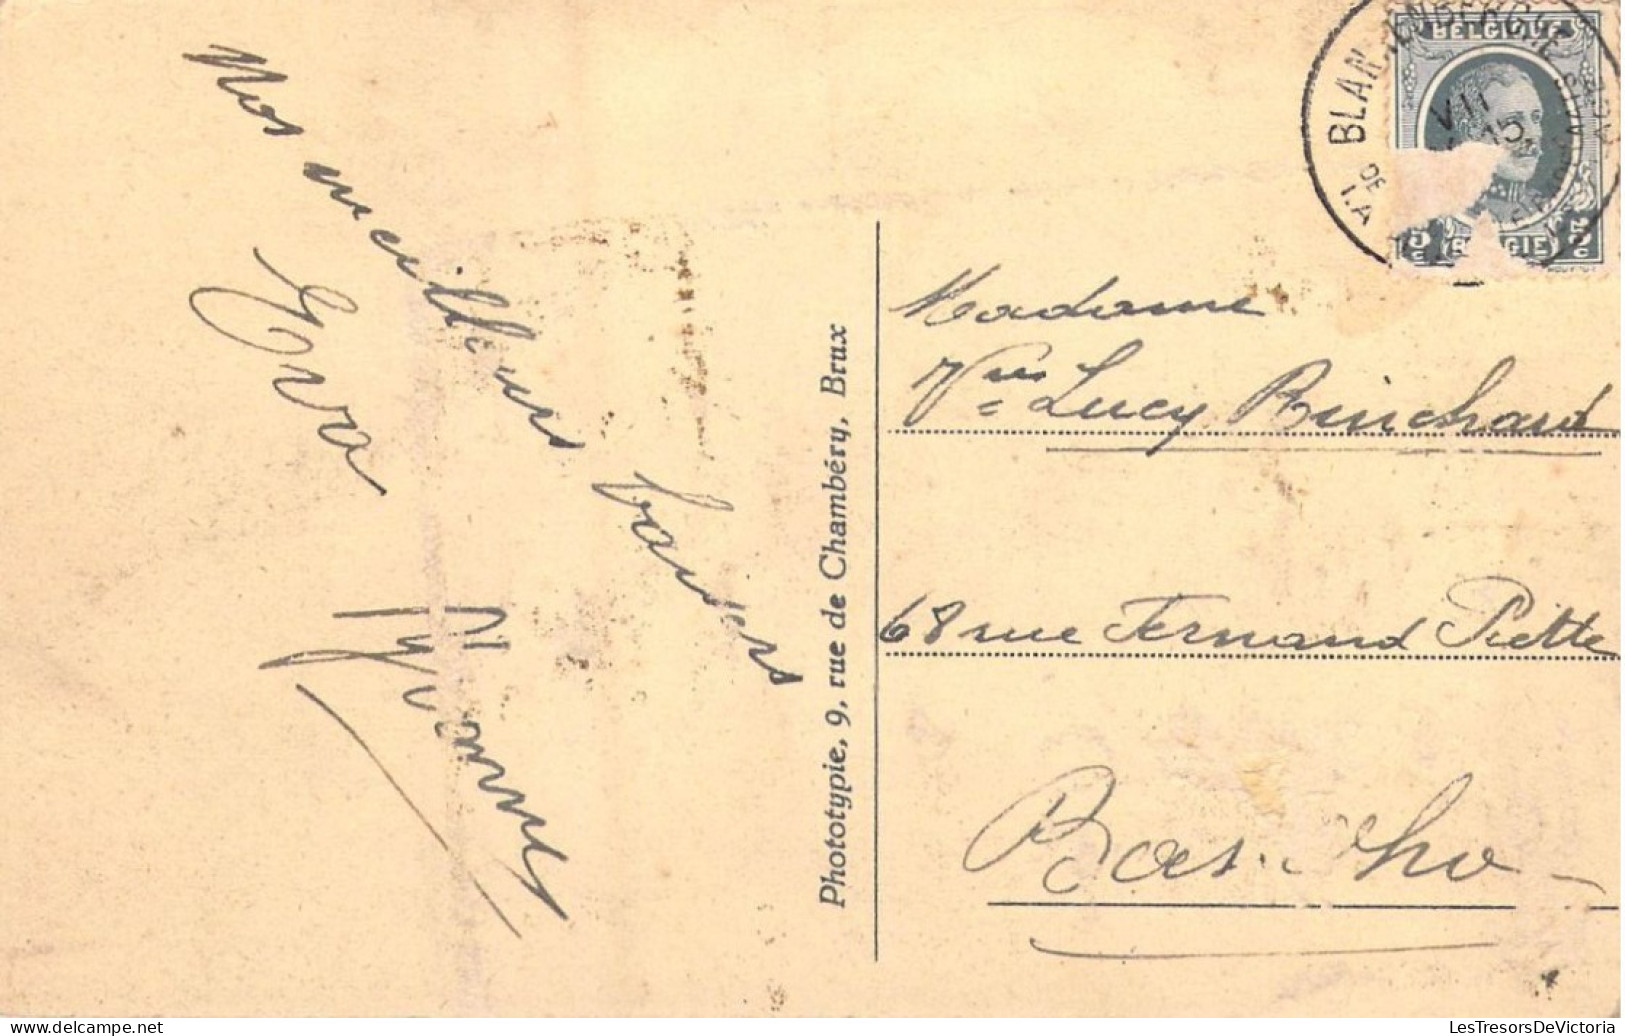 Nos meilleurs baisers
Eva
Yvonne
Phototypie, 9, rue de Chambéry, Brux
BLANKENBERGHE
DE
LA
VII
15
BELGIQUE
5 c
BELGIE
5 c
Madame
Vve Lucy Binchard
68 rue Fernand Piette
Bas-
www.delcampe.net
LesTresorsDeVictoria